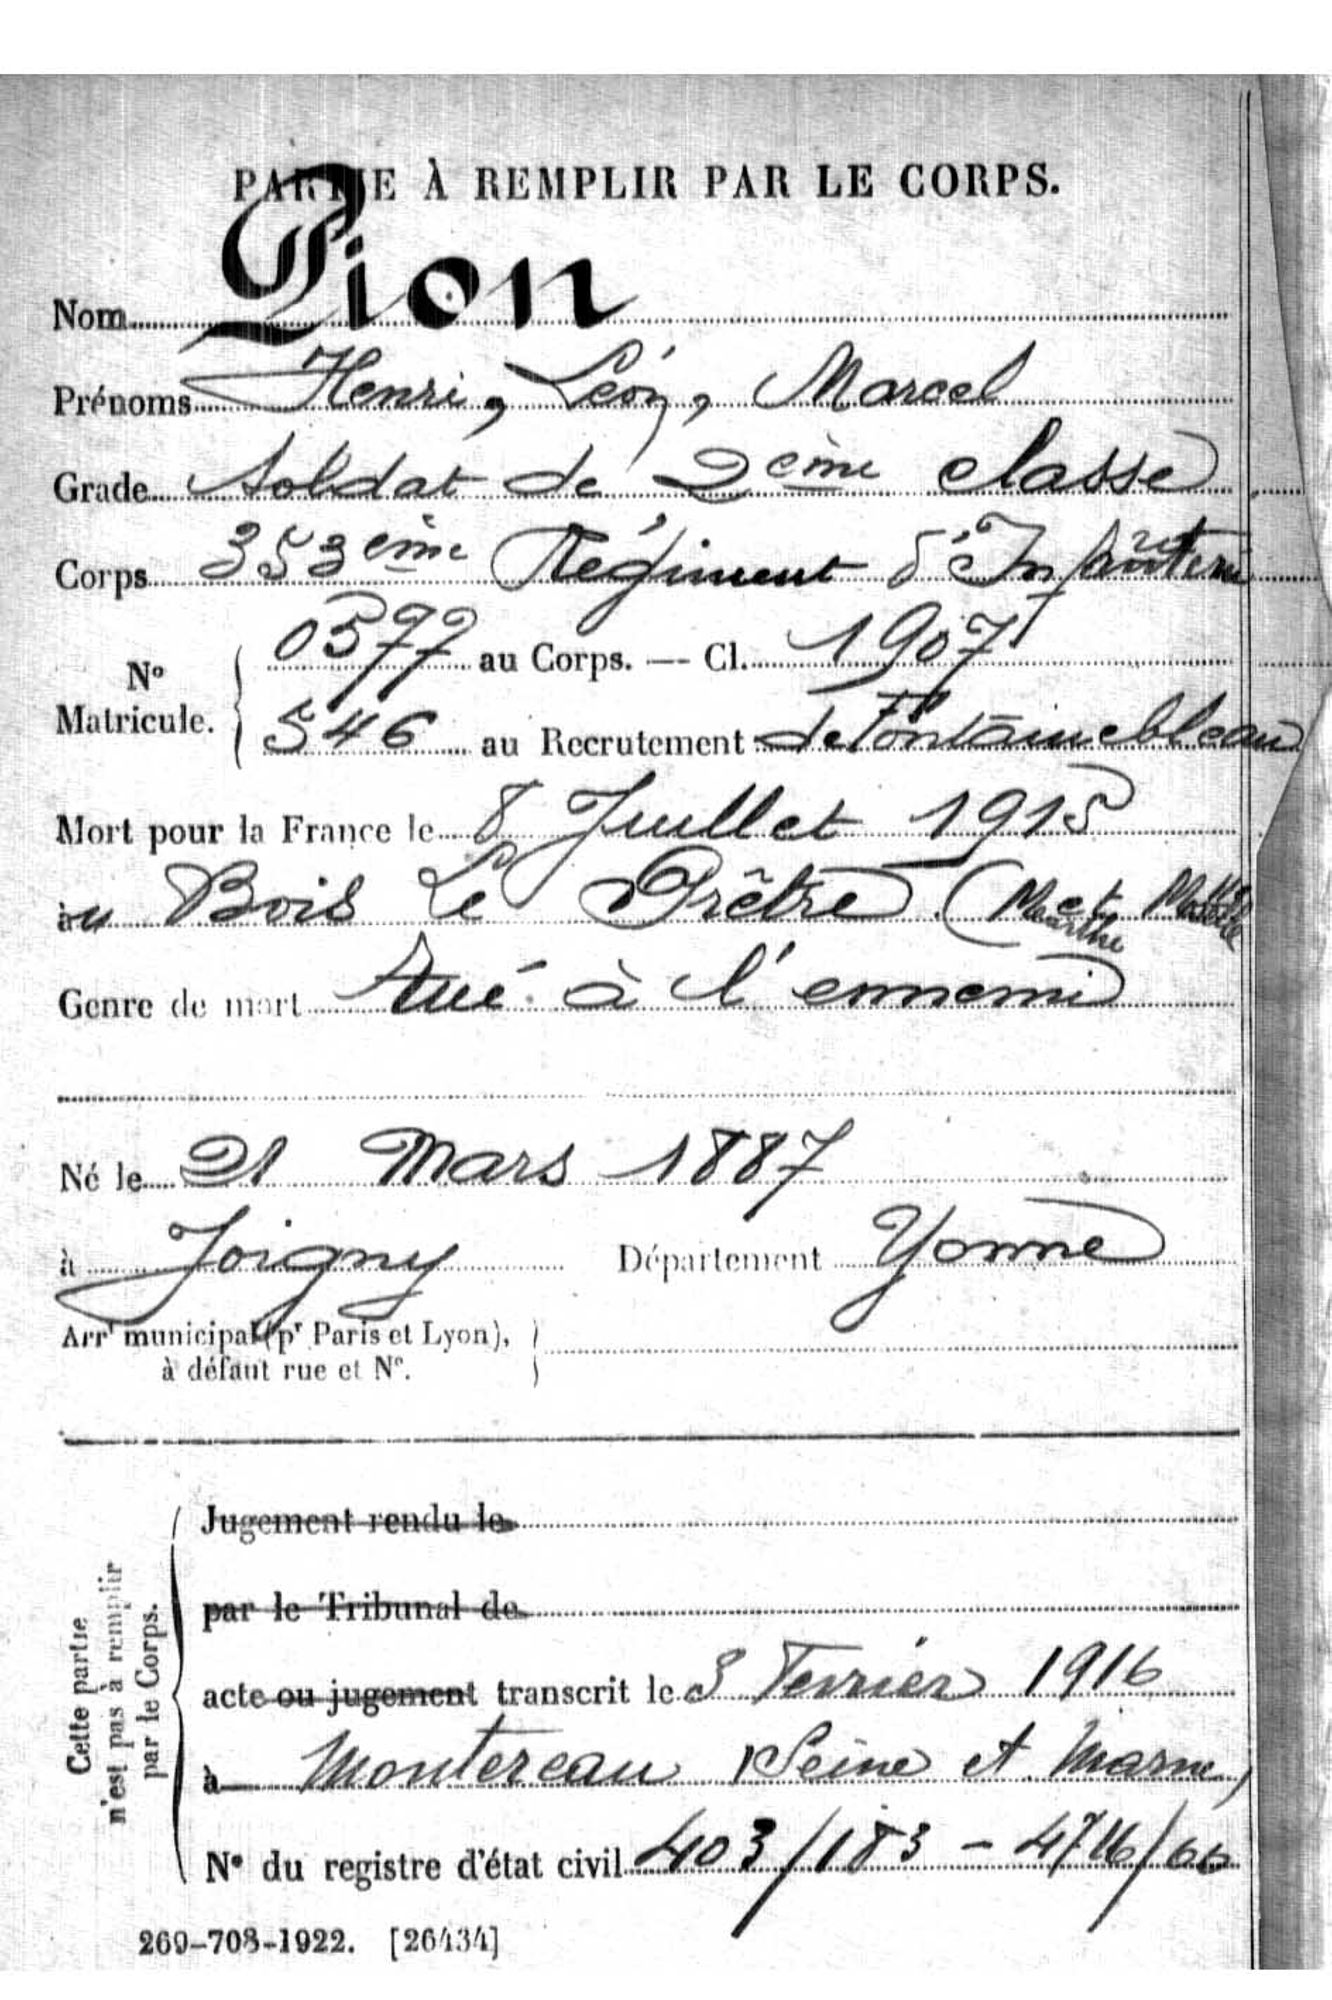 PARTIE À REMPLIR PAR LE CORPS.
Nom Pion
Prénoms Henri, Léon, Marcel
Grade Soldat de 2ème classe
Corps 353ème Régiment d'Infanterie
0577 au Corps. — Cl. 1907
N° Matricule.
546 au Recrutement de Fontainebleau
Mort pour la France le 8 Juillet 1915
au Bois Le Prêtre (Meurthe et Moselle
Genre de mort Tué à l'ennemi
Né le 21 Mars 1887
à Joigny Département Yonne
Arrt municipal (pr Paris et Lyon),
à défaut rue et N°.
Cette partie
n'est pas à remplir
par le Corps.
Jugement rendu le
par le Tribunal de
acte ou jugement transcrit le 3 Fevrier 1916
à Montereau (Seine et Marne)
N° du registre d'état civil 403/183 - 4716/66
269-708-1922. [26434]